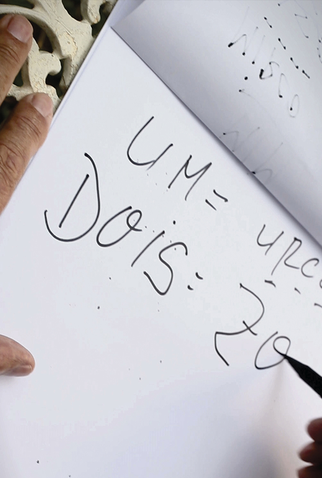 UM= URC
DOiS: ZO